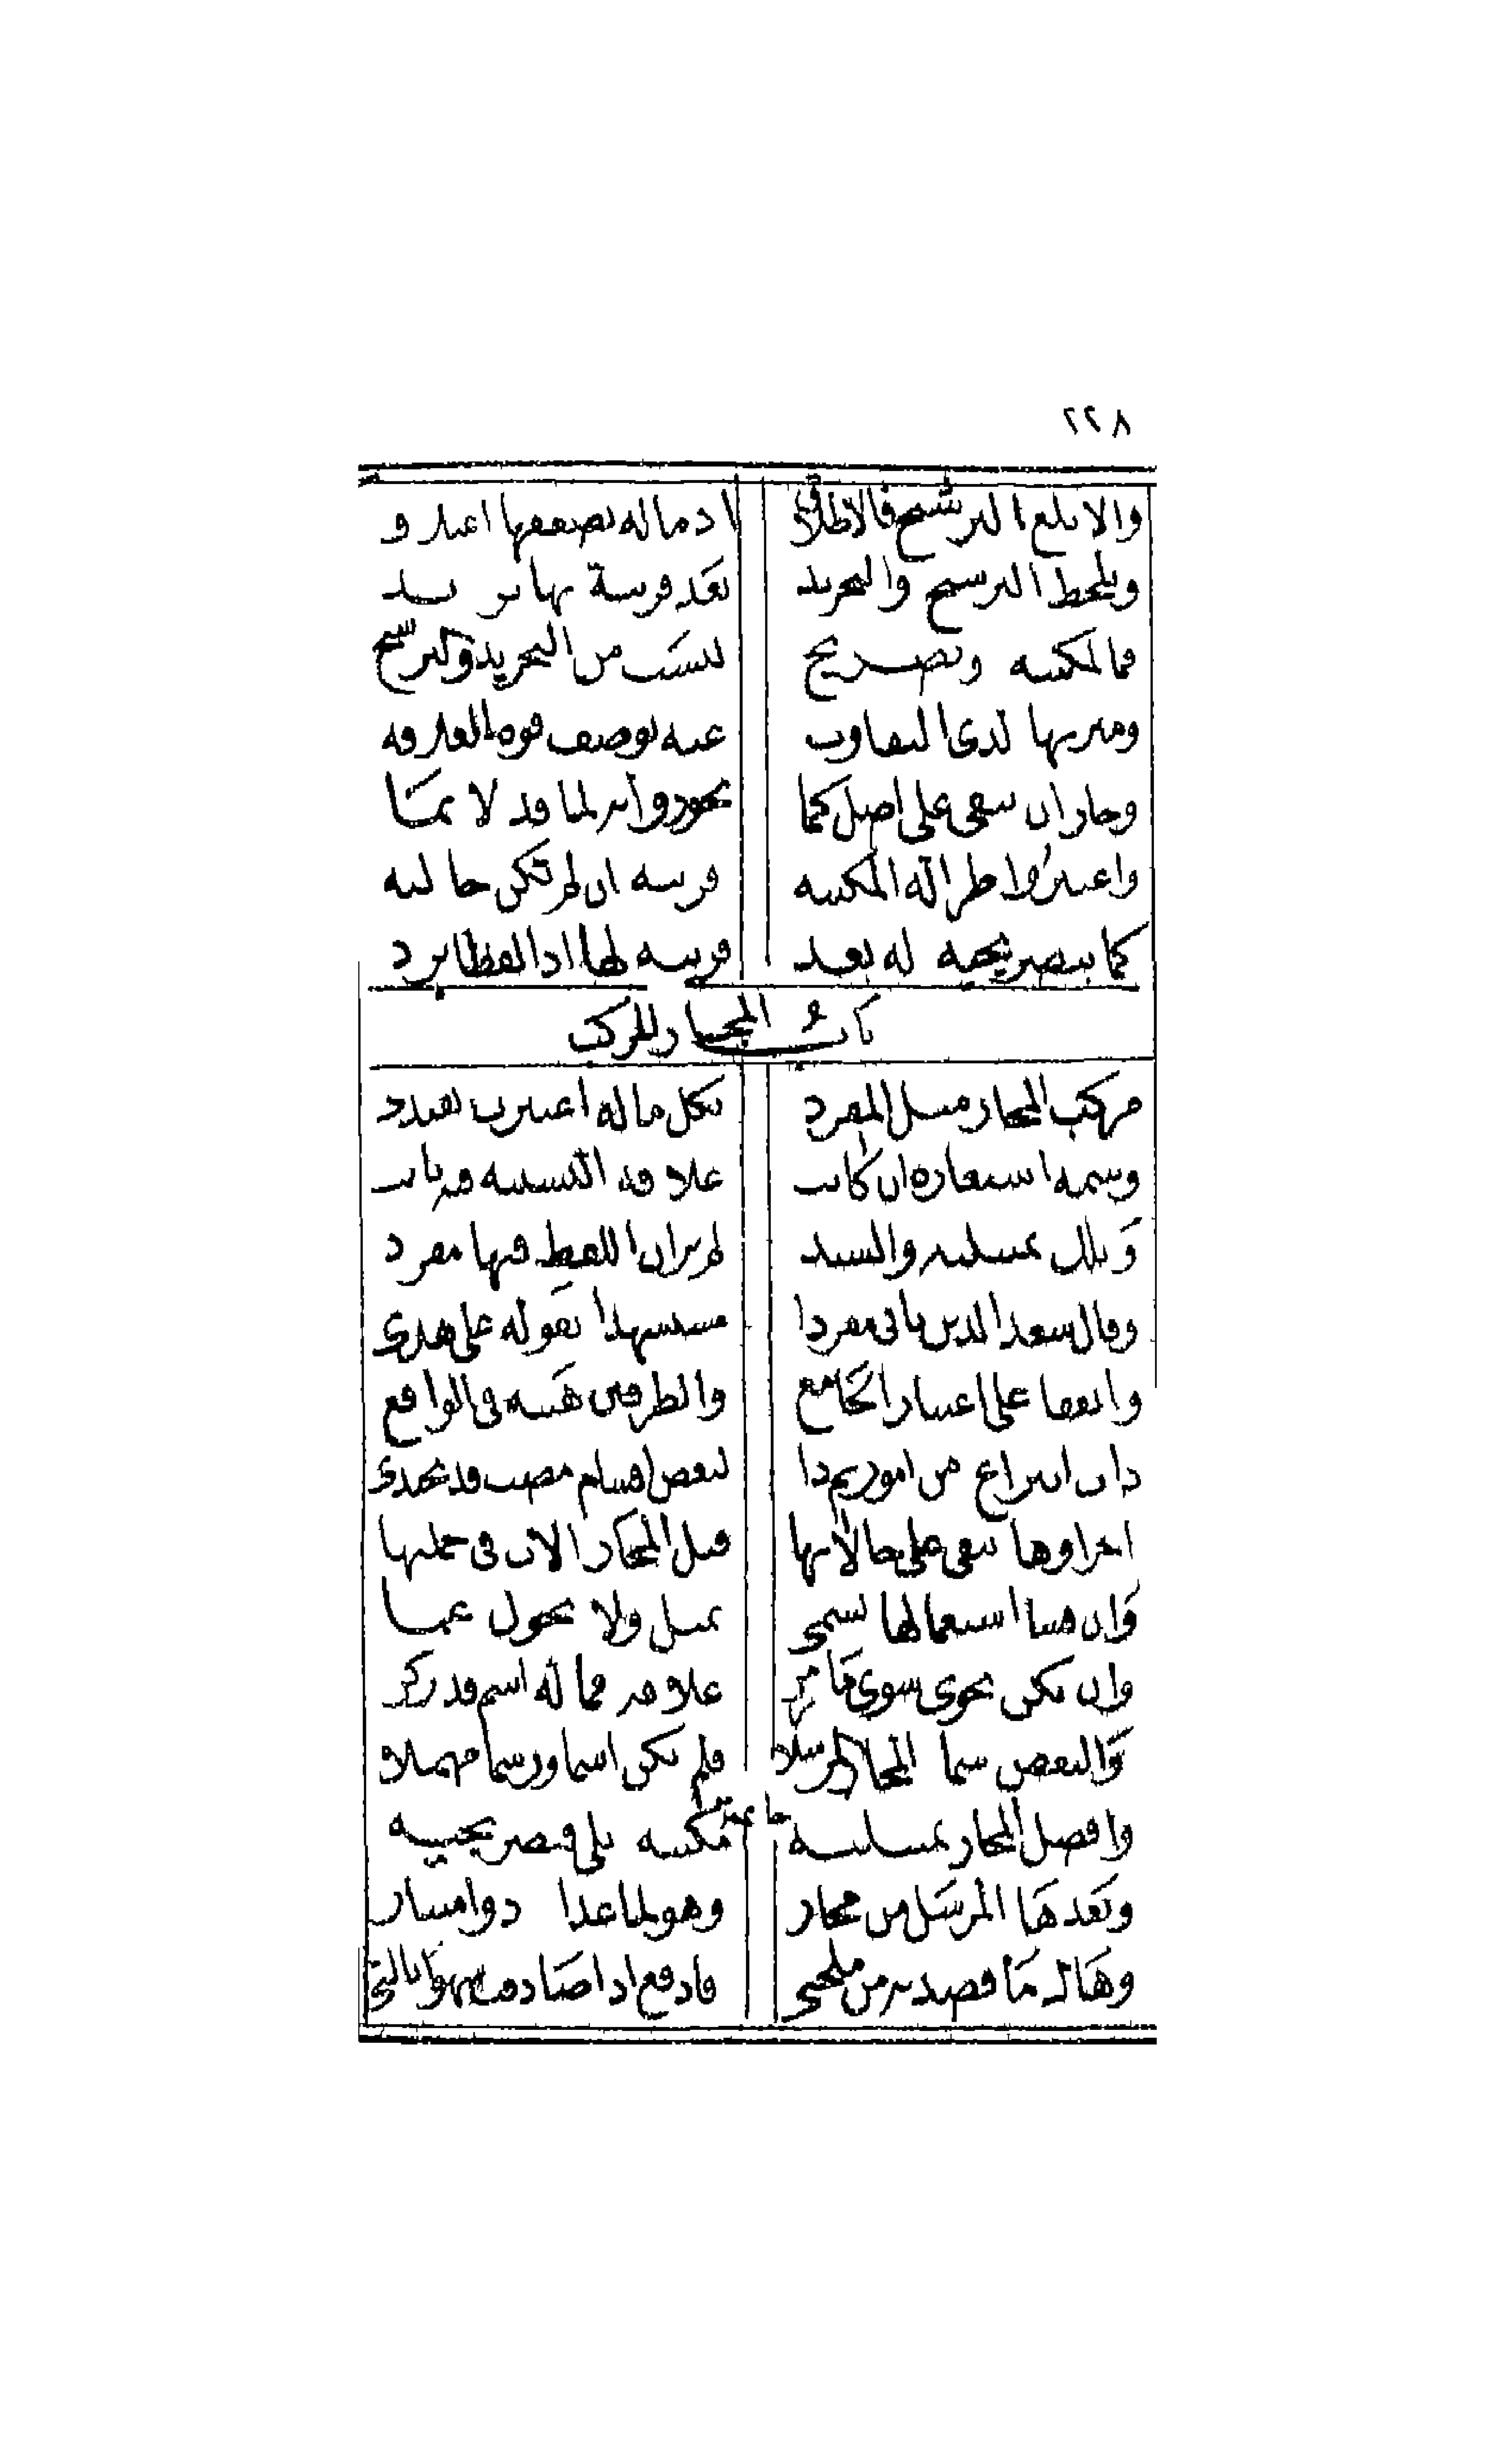 ٢٢٨
والابلغ الترشيح فالاطلاق اذ ماله بضعفها اعتلاق
ويلحظ الترشيح والتجريد بعد قرينة بها تريد
فما لمكنيه وتصريح ليست من التجريد والترشيح
وميزتها لدى التفاوت عنه بوصف قوة العلاقه
وجاز ان يبقى على اصل كما يجوز وانر لما قد لا يما
واعتبروا طرا له المكنيه قرينه ان لم تكن حاليه
كما بتصريحيه له بعد قرينه لها اذا لفظا يرد
باب المجاز المركب
مركب المجاز مثل المفرد بكل ما له اعتبرت تهتدى
وسمه استعاره ان كانت علاقة التشبيه فيه بانت
وتلك تمثيليه والسيد لم ير ان اللفظ فيها مفرد
وقال سعد الدين ياتى مفردا مستشهدا بقوله على هدى
واتفقا على اعتبار الجامع والطرفين هيئه فى الواقع
ذات انتزاع من امور لبعض اقسام
اجزاوها تبقى على حالاتها قبل المجاز الان فى جملتها
وان فشا استعمالها تسمى مثل ولا يحول عما
وان يكن يحوى سوى ما مر علاقة فما له اسم قد ذكر
والبعض سما المجاز المرسلا فلم يكن اسما ورسما مهملا
خاتمة
وافضل المجاز تمثيليه مكنيه تلى فتصريحيه
وبعدها المرسل من مجاز وهو لما عدا ذو امتياز
وهاك ما قصدته من ملحى فادفع اذا صادفت سهوا بالتى